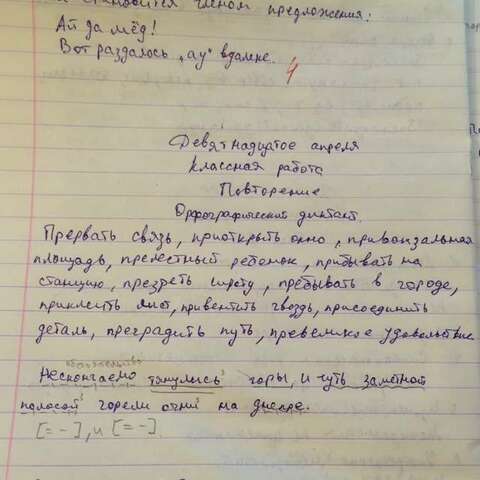 становится членом предложения:
Ай да мёд!
Вот раздалось „ау" вдалне.
4
Девятнадцатое апреля
Классная работа
Повторение
Орфографический диктант.
Прервать связь, приоткрыть окно, привокзальная
площадь, прелестный ребёнок, прибывать на
станцию, презреть сироту, пребывать в городе,
приклеить лист, привентить гвоздь, присоединить
деталь, преградить путь, превеликое удовольствие
обстоятельство
Несконгаемо тянулись горы, и чуть заметной
полосой горели огни на днепре.
[= -], и [= -].